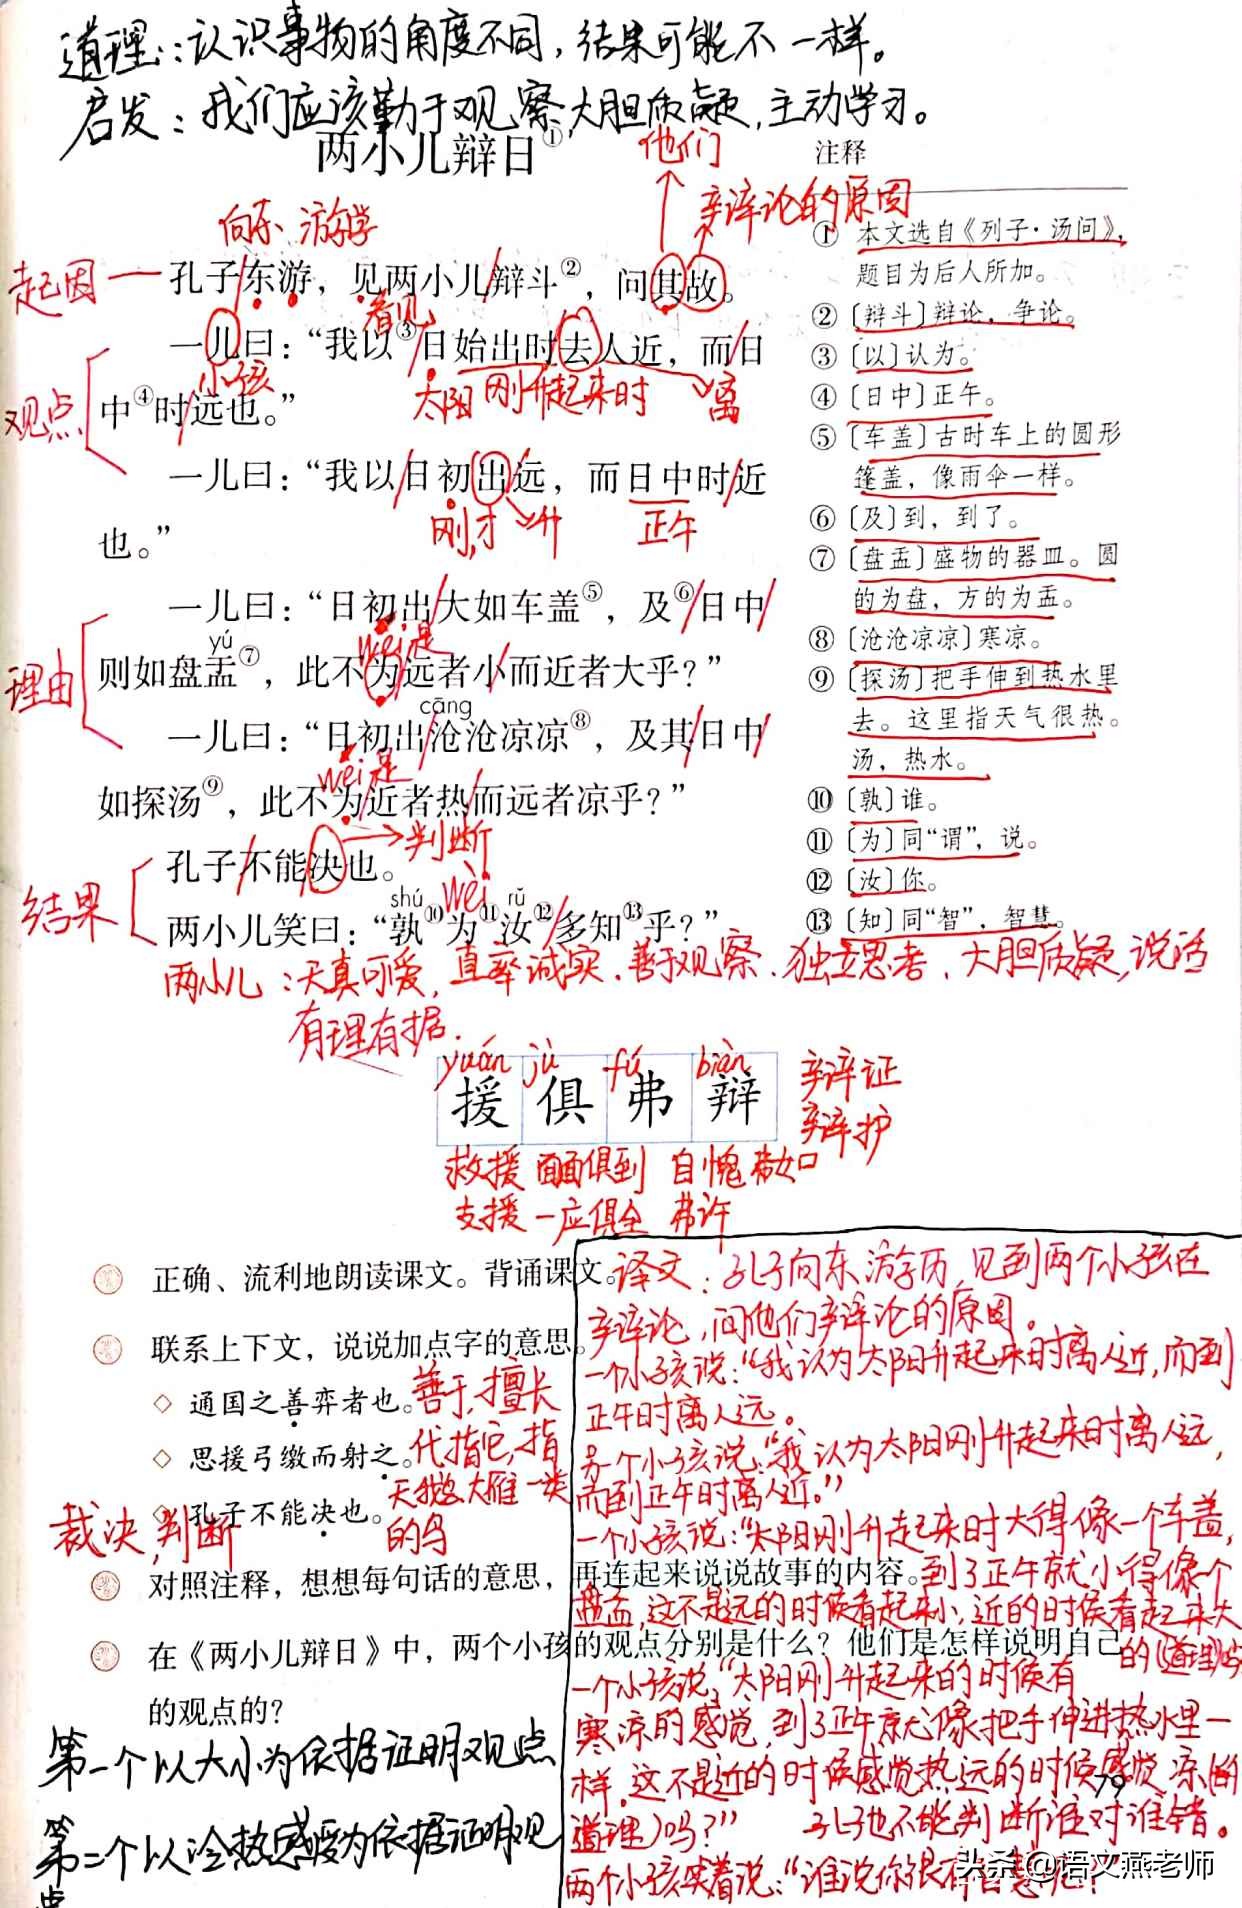 道理：认识事物的角度不同，结果可能不一样。
启发：我们应该勤于观察大胆质疑，主动学习。
两小儿辩日①
他们
注释
辩论的原因
向东 游学
① 本文选自《列子·汤问》，
题目为后人所加。
起因
孔子东游，见两小儿辩斗②，问其故。
看见
② 〔辩斗〕辩论，争论。
一儿曰：“我以③日始出时去人近，而日
③ 〔以〕认为。
小孩
太阳 刚升起来时 离
④ 〔日中〕正午。
观点
中④时远也。”
⑤ 〔车盖〕古时车上的圆形
篷盖，像雨伞一样。
一儿曰：“我以日初出远，而日中时近
刚，才 升 正午
⑥ 〔及〕到，到了。
也。”
⑦ 〔盘盂〕盛物的器皿。圆
的为盘，方的为盂。
一儿曰：“日初出大如车盖⑤，及⑥日中
yú
wéi是
⑧ 〔沧沧凉凉〕寒凉。
理由
则如盘盂⑦，此不为远者小而近者大乎？”
⑨ 〔探汤〕把手伸到热水里
去。这里指天气很热。
汤，热水。
cāng
一儿曰：“日初出沧沧凉凉⑧，及其日中
wéi是
如探汤⑨，此不为近者热而远者凉乎？”
⑩ 〔孰〕谁。
判断
⑪ 〔为〕同“谓”，说。
孔子不能决也。
⑫ 〔汝〕你。
结果
shú wèi rǔ
两小儿笑曰：“孰⑩为⑪汝⑫多知⑬乎？”
⑬ 〔知〕同“智”，智慧。
两小儿：天真可爱，直率诚实、善于观察、独立思考、大胆质疑，说话
有理有据.
yuán jù fú biàn
援 俱 弗 辩
辩证
辩护
救援 面面俱到 自愧弗如
支援 一应俱全 弗许
正确、流利地朗读课文。背诵课文。
联系上下文，说说加点字的意思。
◇ 通国之善弈者也。
善于，擅长
◇ 思援弓缴而射之。
代指它，指
天鹅、大雁一类
的鸟
◇ 孔子不能决也。
裁决，判断
对照注释，想想每句话的意思，再连起来说说故事的内容。
在《两小儿辩日》中，两个小孩的观点分别是什么？他们是怎样说明自己
的观点的？
第一个以大小为依据证明观点
第二个以冷热感受为依据证明观
点
译文：孔子向东游历，见到两个小孩在
辩论，问他们辩论的原因。
一个小孩说：“我认为太阳升起来时离人近，而到
正午时离人远。
另一个小孩说：“我认为太阳刚升起来时离人远，
而到正午时离人近。”
一个小孩说：“太阳刚升起来时大得像一个车盖，
到了正午就小得像个
盘盂，这不是远的时候看起来小，近的时候看起来大
的（道理）吗
一个小孩说，“太阳刚升起来的时候有
寒凉的感觉，到了正午就像把手伸进热水里一
样，这不是近的时候感觉热远的时候感觉凉（的
道理）吗？” 孔子也不能判断谁对谁错。
两个小孩笑着说：“谁说你很有智慧呢？”
79
头条@语文燕老师